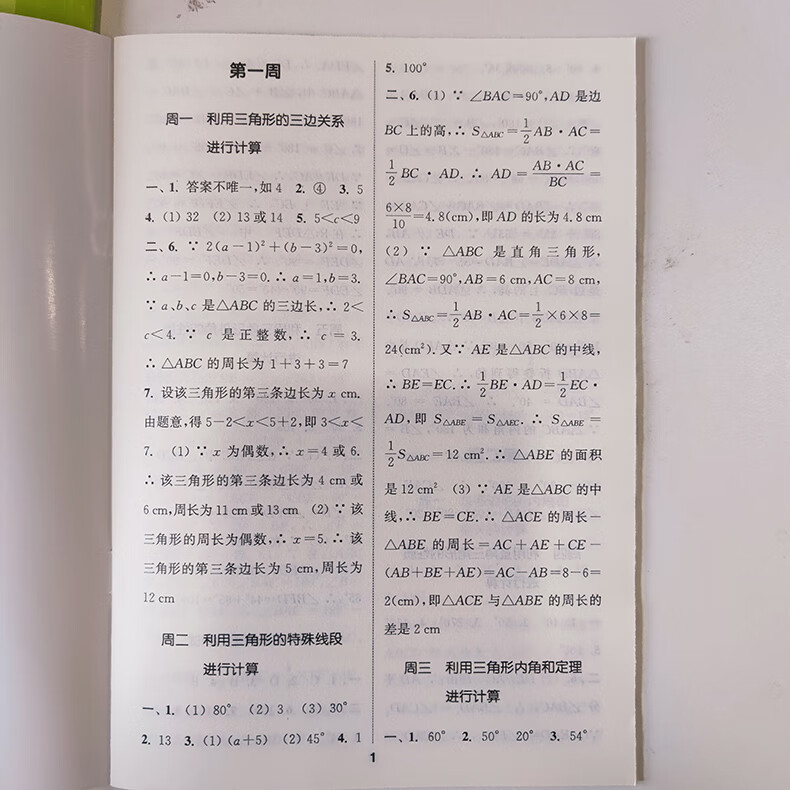 第一周
周一 利用三角形的三边关系
进行计算
一、1. 答案不唯一,如 4 2. ④ 3. 5
4. (1) 32 (2) 13 或 14 5. 5<c<9
二、6. ∵ 2(a-1)²+(b-3)²=0,
∴ a-1=0,b-3=0. ∴ a=1,b=3.
∵ a、b、c 是△ABC 的三边长,∴ 2<
c<4. ∵ c 是正整数,∴ c=3.
∴ △ABC 的周长为 1+3+3=7
7. 设该三角形的第三条边长为 x cm.
由题意,得 5-2<x<5+2,即 3<x<
7. (1) ∵ x 为偶数,∴ x=4 或 6.
∴ 该三角形的第三条边长为 4 cm 或
6 cm,周长为 11 cm 或 13 cm (2) ∵ 该
三角形的周长为偶数,∴ x=5. ∴ 该
三角形的第三条边长为 5 cm,周长为
12 cm
周二 利用三角形的特殊线段
进行计算
一、1. (1) 80° (2) 3 (3) 30°
2. 13 3. (1) (a+5) (2) 45° 4. 1
5. 100°
二、6. (1) ∵ ∠BAC=90°,AD 是边
BC 上的高,∴ S△ABC=1/2 AB·AC=
1/2 BC·AD. ∴ AD=AB·AC/BC=
6×8/10=4.8(cm),即 AD 的长为 4.8 cm
(2) ∵ △ABC 是直角三角形,
∠BAC=90°,AB=6 cm,AC=8 cm,
∴ S△ABC=1/2 AB·AC=1/2×6×8=
24(cm²). 又∵ AE 是△ABC 的中线,
∴ BE=EC. ∴ 1/2 BE·AD=1/2 EC·
AD,即 S△ABE=S△AEC. ∴ S△ABE=
1/2 S△ABC=12 cm². ∴ △ABE 的面积
是 12 cm² (3) ∵ AE 是△ABC 的中
线,∴ BE=CE. ∴ △ACE 的周长-
△ABE 的周长=AC+AE+CE-
(AB+BE+AE)=AC-AB=8-6=
2(cm),即△ACE 与△ABE 的周长的
差是 2 cm
周三 利用三角形内角和定理
进行计算
一、1. 60° 2. 50° 20° 3. 54°
1